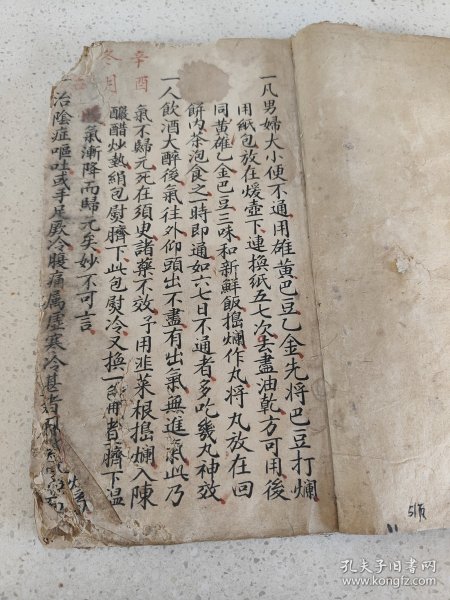 一凡男婦大小便不通用雄黄巴豆乙金先將巴豆打爛
用紙包放在煖壺下連換紙五七次去盡油乾方可用後
同黄雄乙金巴豆三味和新鮮飯搗爛作丸將丸放在回
餅內茶泡食之一時即通如六七日不通者多吃幾丸神效
一人飲酒大醉後氣往外仰頭出不盡有出氣無進氣此乃
氣不歸元死在須臾諸藥不效予用韭菜根搗爛入陳
釅醋炒熱絹包熨臍下此包熨冷又換一
者臍下温
氣漸降而歸元矣妙不可言
治陰症嘔吐或手足厥冷腹痛属虛寒冷甚者
辛酉
冬月
51页
孔夫子旧书网
www.kongfz.com